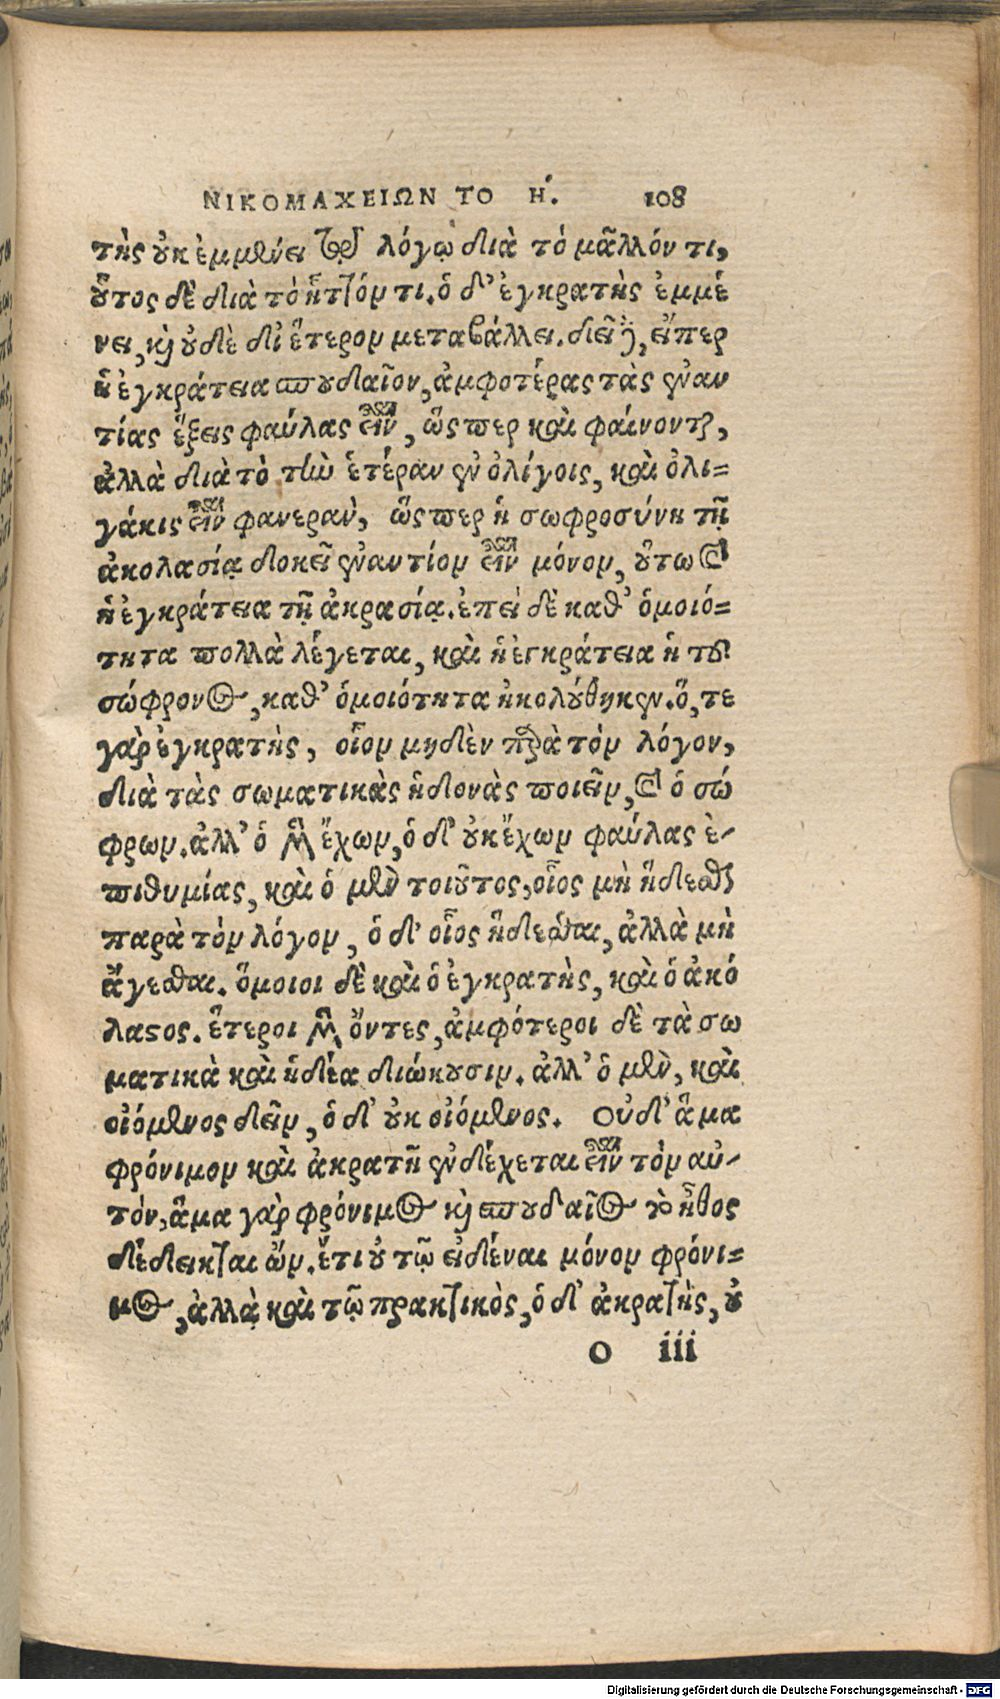 ΝΙΚΟΜΑΧΕΙΩΝ ΤΟ Η. 108
τὴς οὐκ ἐμμένει τῷ λόγῳ διὰ τὸ μᾶλλόν τι,
οὗτος δὲ διὰ τὸ ἧττόν τι. ὁ δ' ἐγκρατὴς ἐμμέ
νει, καὶ οὐδὲ δι' ἕτερον μεταβάλλει. δεῖ δὲ, εἴπερ
ἡ ἐγκράτεια σπουδαῖον, ἀμφοτέρας τὰς ἐναν
τίας ἕξεις φαύλας εἶναι, ὥσπερ καὶ φαίνονται,
ἀλλὰ διὰ τὸ τὴν ἑτέραν ἐν ὀλίγοις, καὶ ὀλι-
γάκις εἶναι φανερὰν, ὥσπερ ἡ σωφροσύνη τῇ
ἀκολασίᾳ δοκεῖ ἐναντίον εἶναι μόνον, οὕτω καὶ
ἡ ἐγκράτεια τῇ ἀκρασίᾳ. ἐπεὶ δὲ καθ' ὁμοιό-
τητα πολλὰ λέγεται, καὶ ἡ ἐγκράτεια ἡ τοῦ
σώφρονος, καθ' ὁμοιότητα ἠκολούθηκεν. ὅ, τε
γὰρ ἐγκρατὴς, οἷον μηδὲν παρὰ τὸν λόγον,
διὰ τὰς σωματικὰς ἡδονὰς ποιεῖν, καὶ ὁ σώ
φρων. ἀλλ' ὁ μὲν ἔχων, ὁ δ' οὐκ ἔχων φαύλας ἐ-
πιθυμίας, καὶ ὁ μὲν τοιοῦτος, οἷος μὴ ἥδεσθαι
παρὰ τὸν λόγον, ὁ δ' οἷος ἥδεσθαι, ἀλλὰ μὴ
ἄγεσθαι. ὅμοιοι δὲ καὶ ὁ ἐγκρατὴς, καὶ ὁ ἀκό
λαστος. ἕτεροι μὲν ὄντες, ἀμφότεροι δὲ τὰ σω
ματικὰ καὶ ἡδέα διώκουσιν. ἀλλ' ὁ μὲν, καὶ
οἰόμενος δεῖν, ὁ δ' οὐκ οἰόμενος. Οὐδ' ἅμα
φρόνιμον καὶ ἀκρατῆ ἐνδέχεται εἶναι τὸν αὐ-
τόν, ἅμα γὰρ φρόνιμος καὶ σπουδαῖος τὸ ἦθος
δέδεικται ὤν. ἔτι οὐ τῷ εἰδέναι μόνον φρόνι-
μος, ἀλλὰ καὶ τῷ πρακτικὸς, ὁ δ' ἀκρατὴς, οὐ
O iii
Digitalisierung gefördert durch die Deutsche Forschungsgemeinschaft - DFG